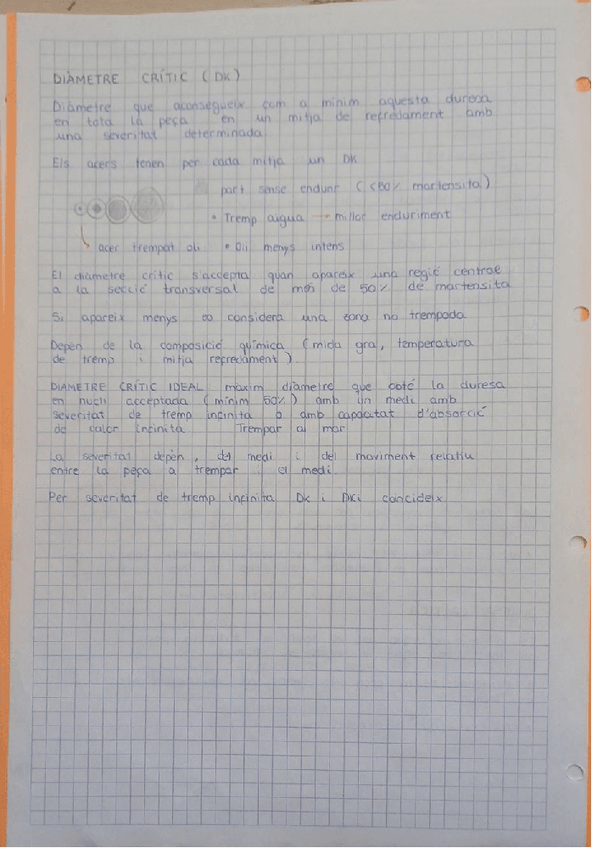 DIÀMETRE CRÍTIC (DK)
Diàmetre que aconsegueix com a mínim aquesta duresa
en tota la peça en un mitja de refredament amb
una severitat determinada
Els acers tenen per cada mitja un DK
part sense endurir (<50% martensita)
• Tremp aigua → millor enduriment
acer trempat oli • Oli menys intens
El diàmetre crític s'accepta quan apareix una regió central
a la secció transversal de més de 50% de martensita
Si apareix menys es considera una zona no trempada
Depèn de la composició química (mida gra, temperatura
de tremp i mitja refredament).
DIAMETRE CRÍTIC IDEAL: màxim diàmetre que coté la duresa
en nucli acceptada (mínim 50%) amb un medi amb
severitat de tremp infinita o amb capacitat d'absorció
de calor infinita. Trempar al mar
La severitat depèn, del medi i del moviment relatiu
entre la peça a trempar i el medi.
Per severitat de tremp infinita Dk i DKi coincideix